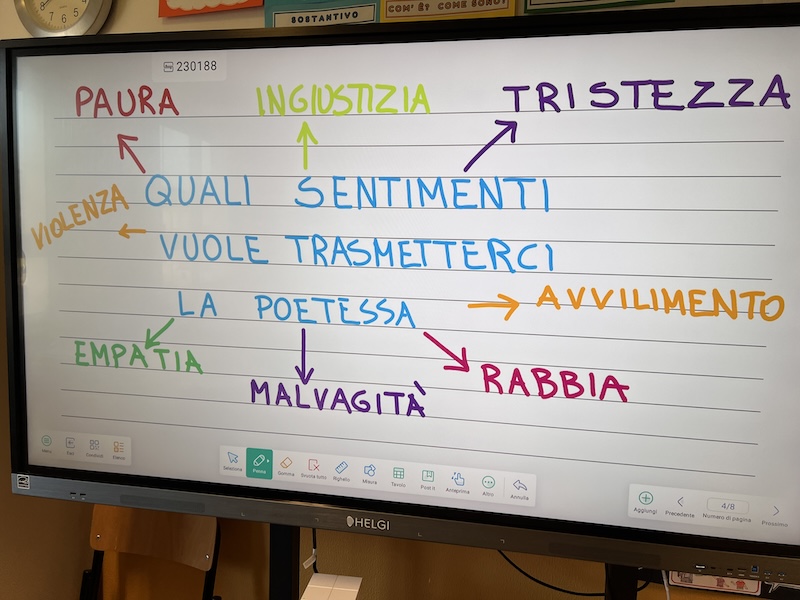 SOSTANTIVO
COM' È? COME SONO?
230188
PAURA
INGIUSTIZIA
TRISTEZZA
VIOLENZA
QUALI SENTIMENTI
VUOLE TRASMETTERCI
LA POETESSA
AVVILIMENTO
EMPATIA
MALVAGITÀ
RABBIA
Menu
Condividi
Elenco
Seleziona
Penna
Gomma
Svuota tutto
Righello
Misura
Tavolo
Post it
Anteprima
Altro
Annulla
Aggiungi
Precedente
4/8
Numero di pagina
Prossimo
HELGI